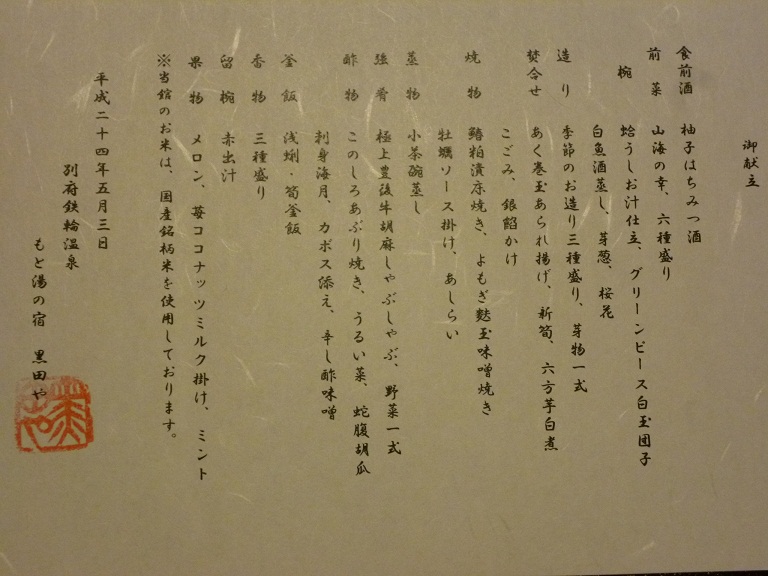 御献立
食前酒 柚子はちみつ酒
前菜 山海の幸、六種盛り
椀 蛤うしお汁仕立、グリーンピース白玉団子
白魚酒蒸し、芽葱、桜花
造り 季節のお造り三種盛り、芽物一式
焚合せ あく巻玉あられ揚げ、新筍、六方芋白煮
こごみ、銀餡かけ
焼物 鰆粕漬床焼き、よもぎ麩玉味噌焼き
牡蠣ソース掛け、あしらい
蒸物 小茶碗蒸し
強肴 極上豊後牛胡麻しゃぶしゃぶ、野菜一式
酢物 このしろあぶり焼き、うるい菜、蛇腹胡瓜
刺身海月、カボス添え、辛し酢味噌
釜飯 浅蜊・筍釜飯
香物 三種盛り
留椀 赤出汁
果物 メロン、苺ココナッツミルク掛け、ミント
※当館のお米は、国産銘柄米を使用しております。
平成二十四年五月三日
別府鉄輪温泉
もと湯の宿 黒田や